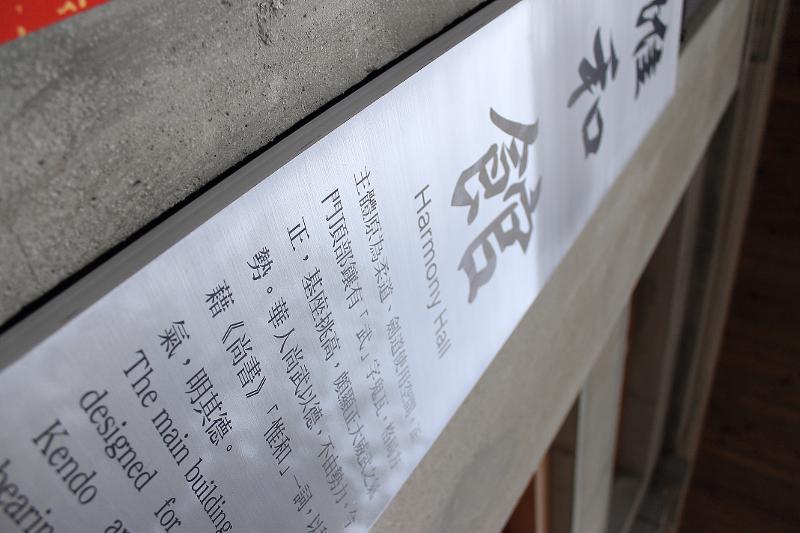 惟和
館
Harmony Hall
主體原為柔道、劍道使用空間，
門頂部鑲有「武」字鬼瓦，格局方
正，基座挑高，頗顯正大演武之氣
勢。華人尚武以德，不由勢力，今
藉《尚書》「惟和」一詞，以
氣，明其德。
The main building
designed for
Kendo
bearing